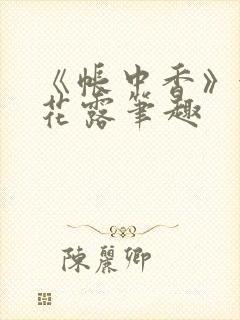 《帳中香》
花露筆趣
陳麗卿